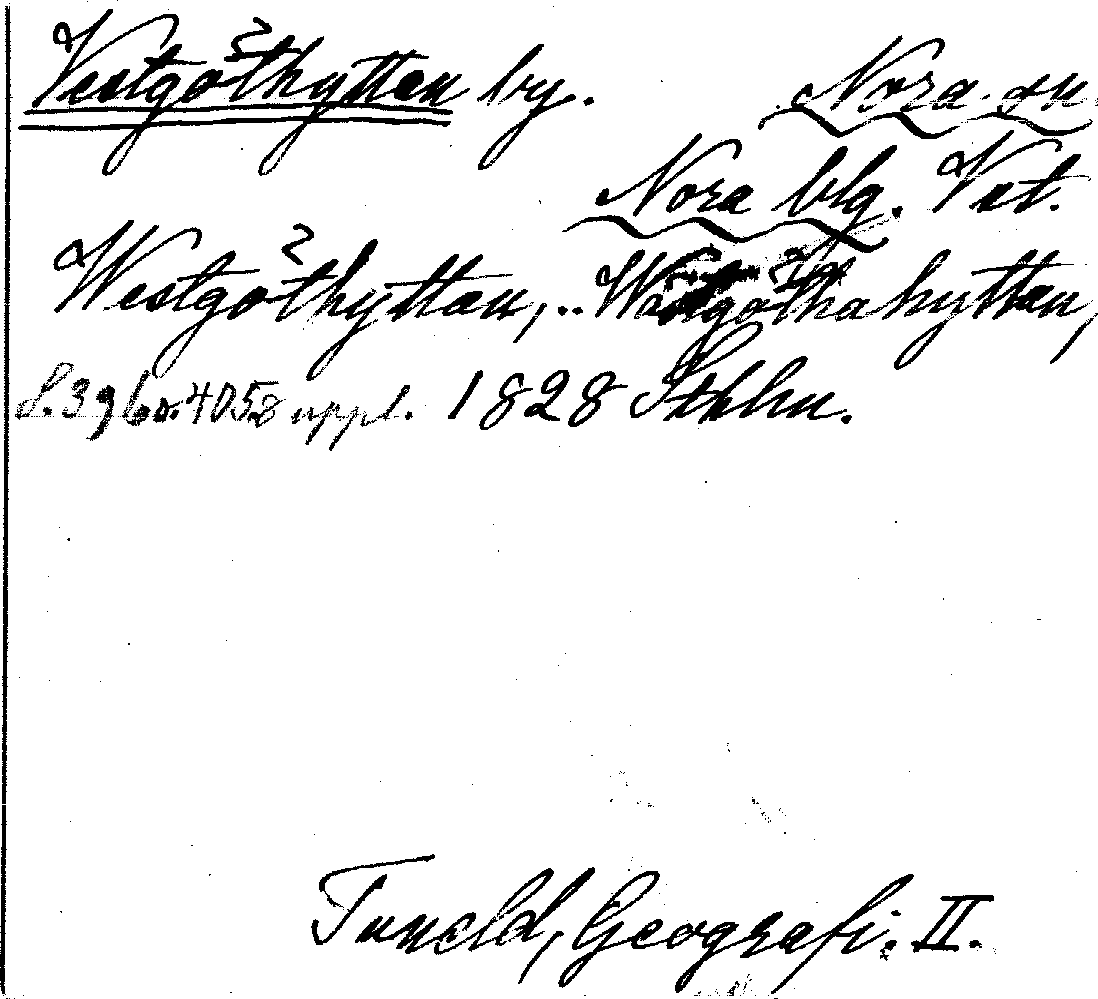 Vestgöthyttan by. Nora sn
Nora blg. Vst.
Westgöthyttan, .. Westgötha hyttan,
S. 396 o. 405 8 uppl. 1828 Sthlm.
Tuneld, Geografi. II.